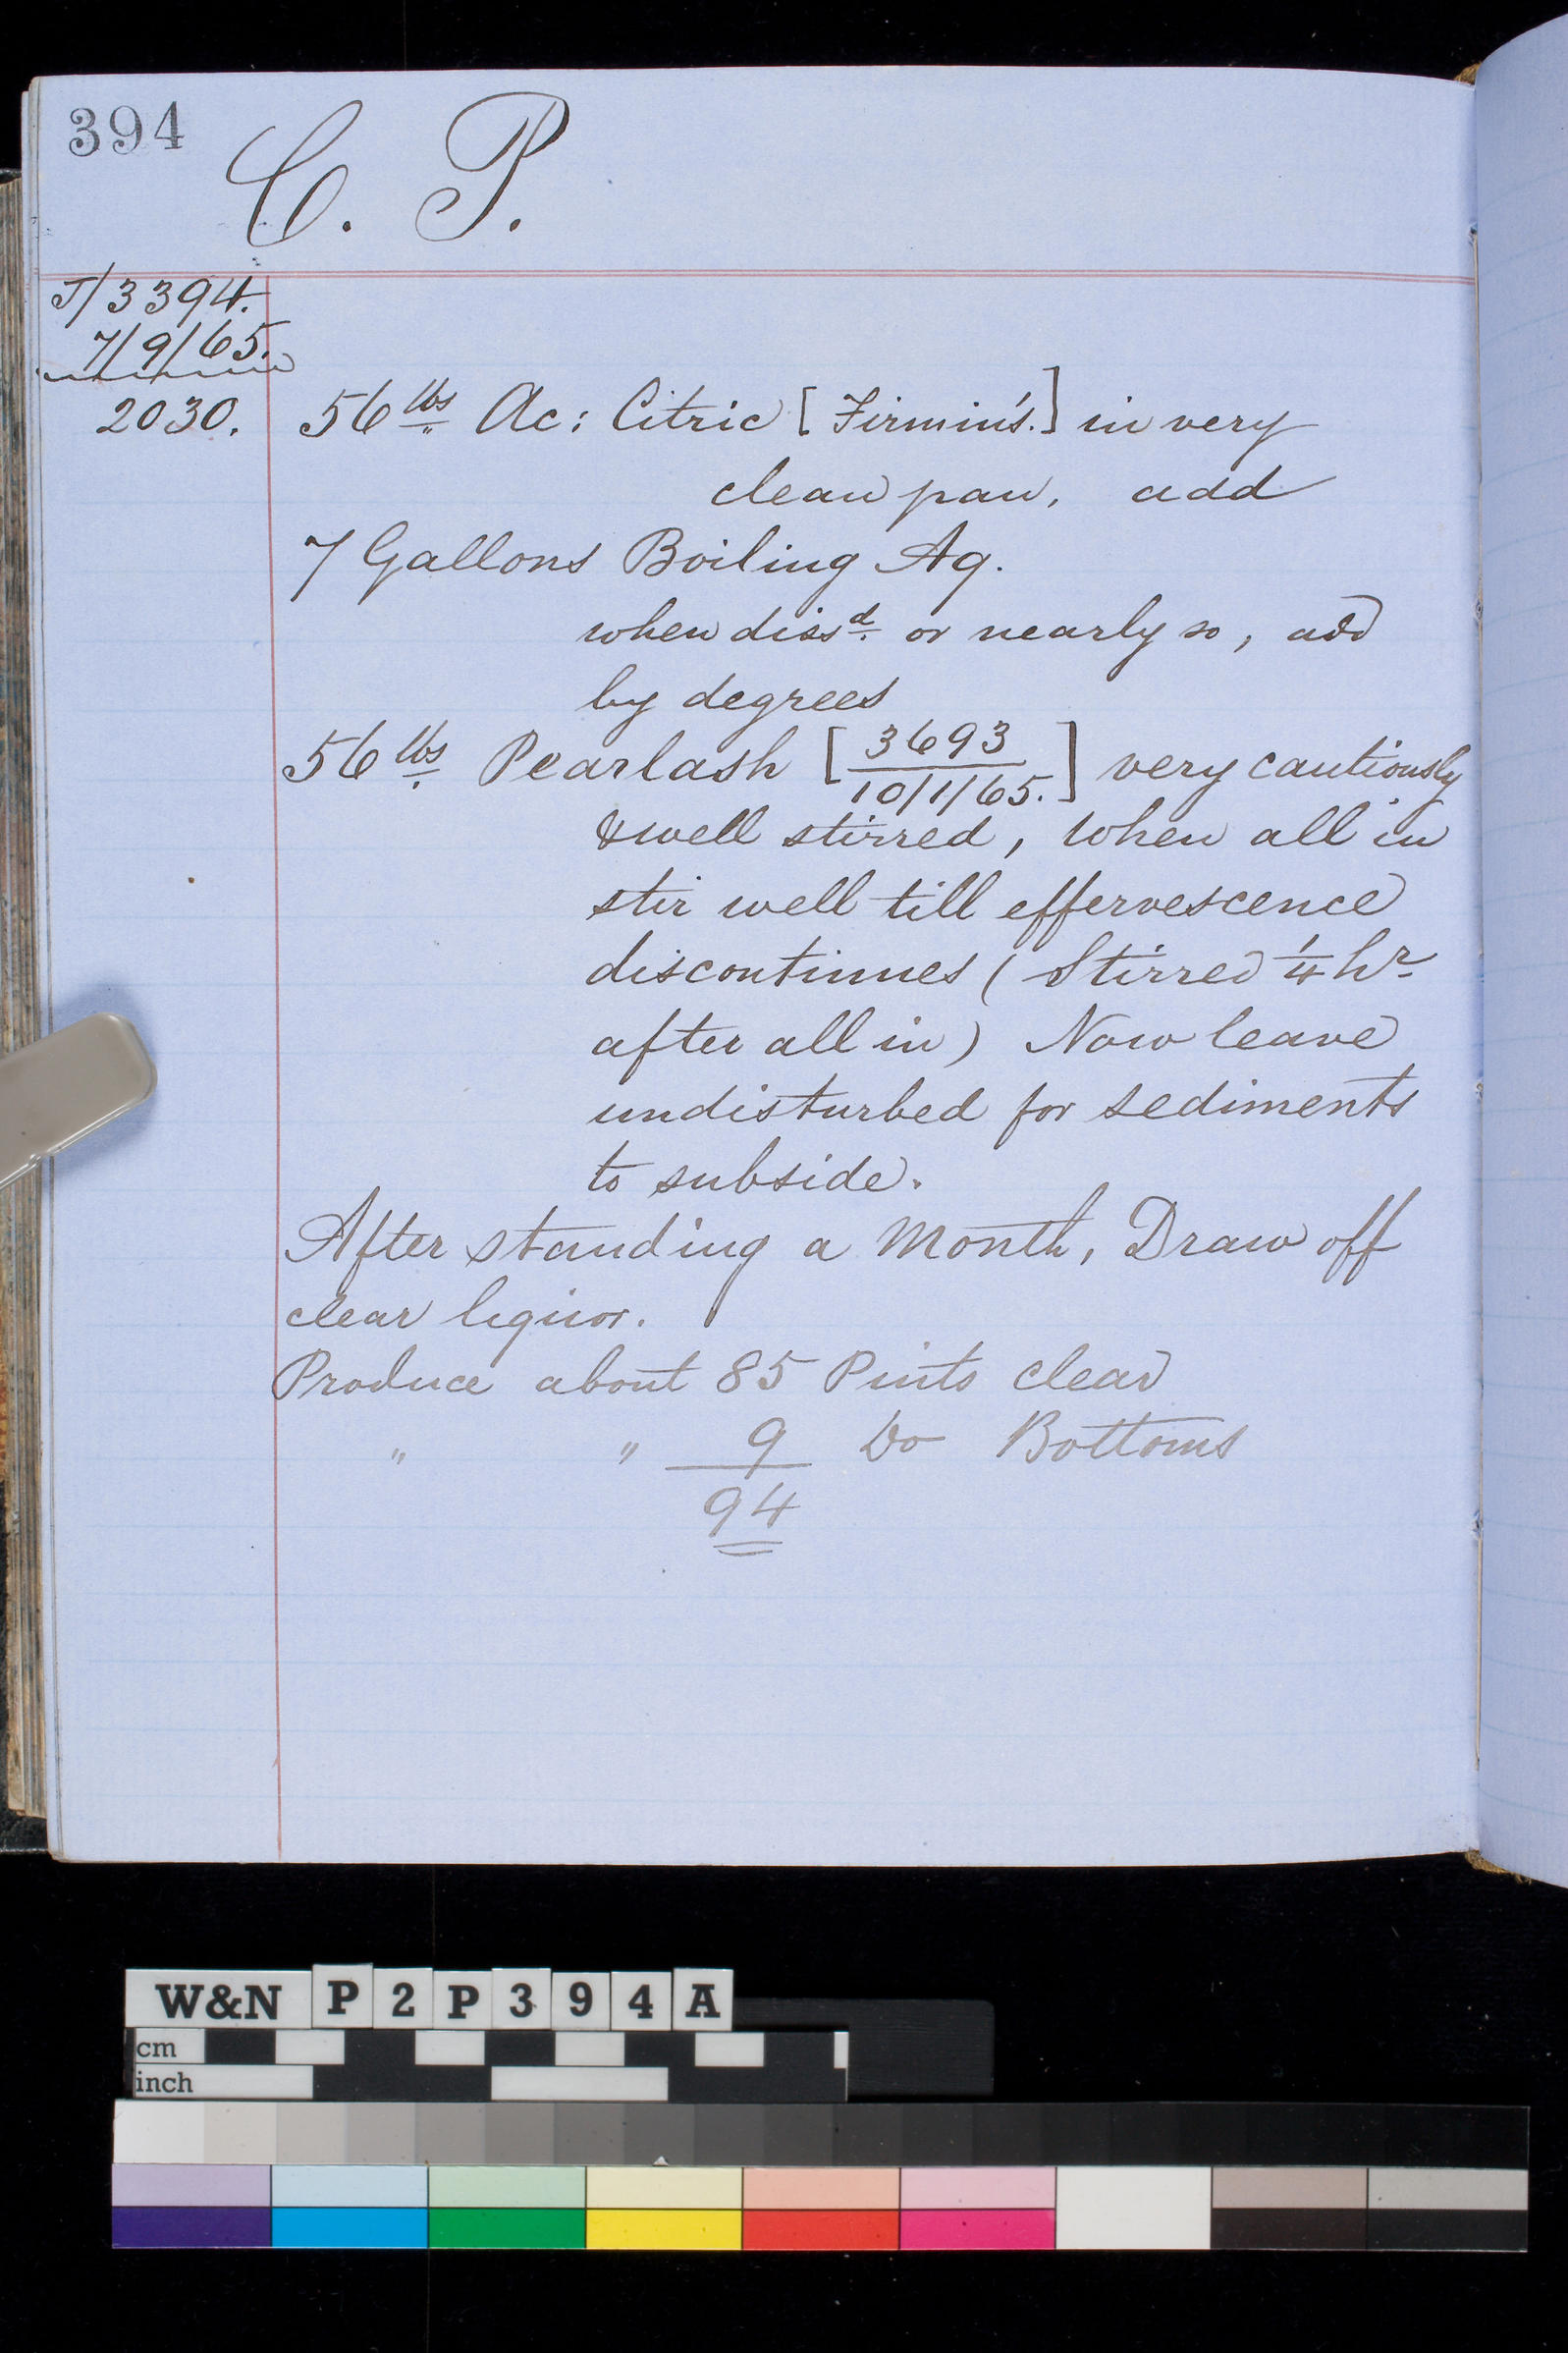 394
C. P.
J/3394.
7/9/65.
2030. 56 lbs Ac: Citric [Firmin's.] in very
clean pan, add
7 Gallons Boiling Aq.
when dissd. or nearly so, add
by degrees
56 lbs Pearlash [3693
10/1/65.] very cautiously
& well stirred, When all in
stir well till effervescence
discontinues (Stirred 1/4 hr.
after all in) Now leave
undisturbed for sediments
to subside.
After standing a Month, Draw off
clear liquor.
Produce about 85 Pints clear
" " 9 Do Bottoms
94
W&N P2P394A
cm
inch